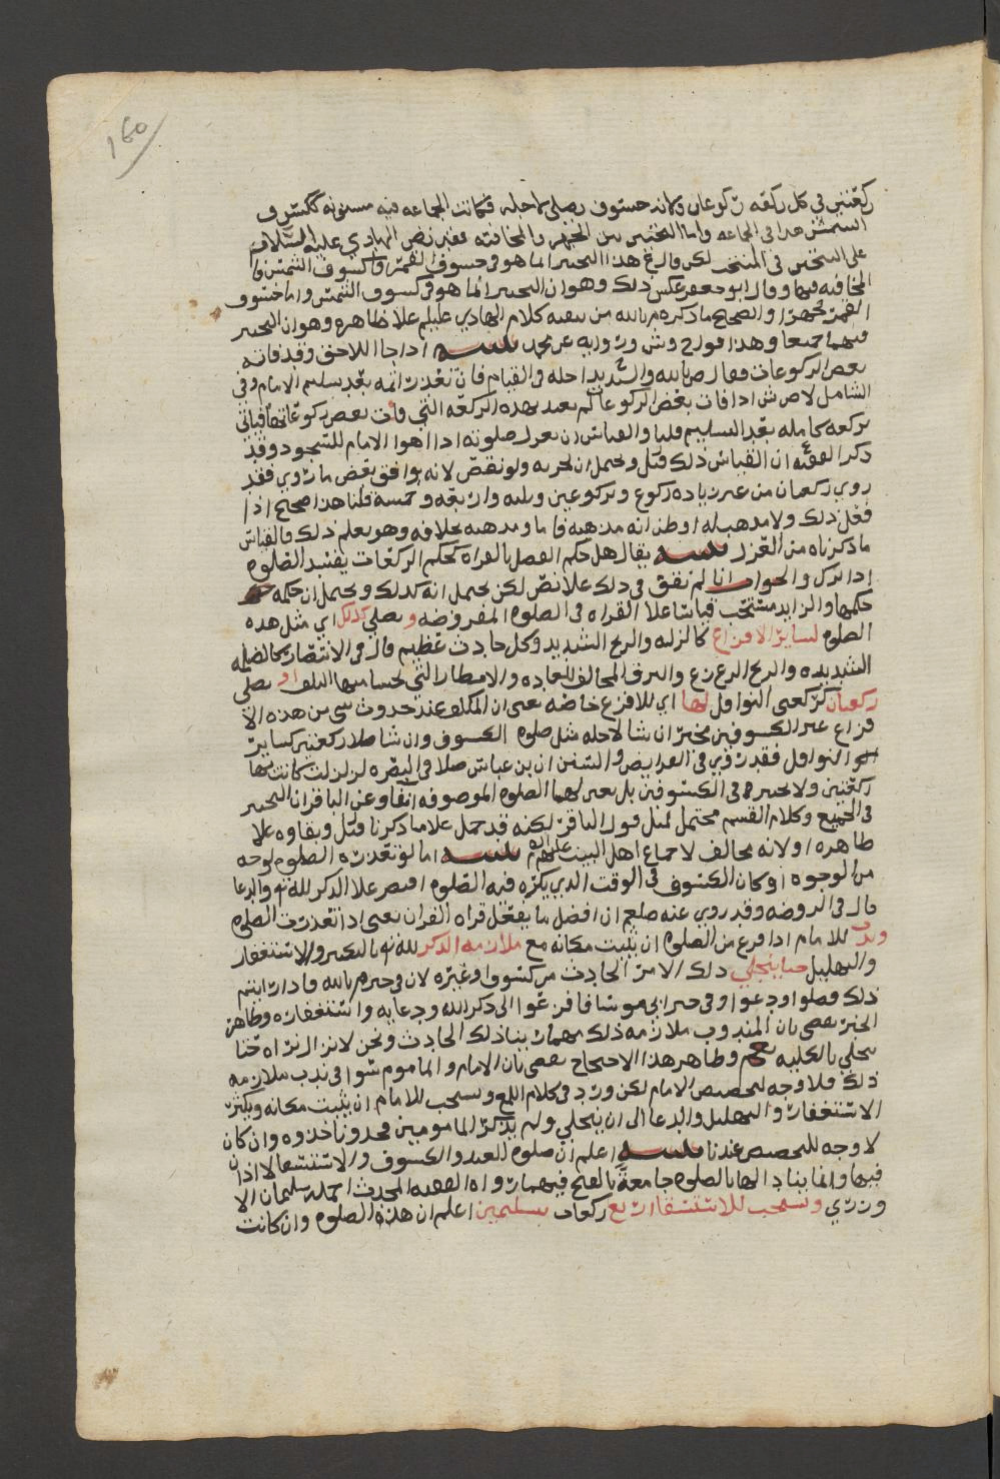 160
ركعتين في كل ركعه ركوعان ولانه خسوف يصلى لاجله فكانت الجماعه فيه مسنونه ككسوف
الشمس هذا في الجماعه واما التخيير بين الجهر والمخافته فقد نص الهادي عليه السلام
على التخيير في المنتخب لكن قال هذا التخيير انما هو في خسوف القمر واما كسوف الشمس
المخافته فيها وقال ابو جعفر عكس ذلك وهو ان التخيير انما هو في كسوف الشمس واما خسوف
القمر فجهرا والصحيح ما ذكره م بالله من بقيه كلام الهادي عليلم علا ظاهره وهو ان التخيير
فيهما جميعا وهذا قول ح وش ورواية عن محمد تنبيه اذا جا اللاحق وقد فاته
بعض الركوعات فقال ص بالله والشديد احله في القيام فان تعذر اتمه بعد تسليم الامام وفي
الشامل لاص ش اذا فات بعض الركوعات لم يعتد بهذه الركعه التي فات بعض ركوعاتها فياتي
بركعه كامله بعد التسليم قلنا والقياس ان يعزل صلوته اذا اهوا الامام للسجود وقد
ذكر الفقيه ان القياس ذلك قبل ويحتمل ان تجزيه ولو نقص لانه يوافق بعض ما روي فقد
روي ركعتان من غير زياده ركوع وبركوعين وثلثه واربعه وخمسه قلنا هذا صحيح اذا
فعل ذلك ولا مذهب له او ظن انه مذهبه فاما ومذهبه بخلافه وهو يعلم ذلك فالقياس
ما ذكرناه من العزل تنبيه يقال هل حكم الفصل بالقراه كحكم الركعات يفسد الصلوه
اذا ترك والجواب انا لم نقف في ذلك علا نص لكن يحتمل انه كذلك ويحتمل ان حكمه
حكمها والزايد مستحب قياسا علا القراه في الصلوه المفروضه ويصلي كذلك اي مثل هذه
الصلوه لساير الافزاع كالزلزله والريح الشديد وكل حادث عظيم قال في الانتصار كالظلمه
الشديده والريح الزعزع والبرق المخالف للعاده والامطار التي يخشا منها التلف او يصلى
ركعتان كركعتي النوافل لها اي للافزع خاصه يعنى ان المكلف عند حدوث شي من هذه الا
فزاع غير الكسوفين مخير ان شا لاجله مثل صلوه الكسوف وان شا صلا ركعتين كساير
النوافل فقد روي في الفرايض والسنن ان بن عباس صلا في البصره لزلزلت كانت بها
ركعتين ولا تخيير في الكسوفين بل يعين لهما الصلوه الموصوفه انفا وعن الباقر ان التخيير
في الجميع وكلام القسم محتمل لمثل قول الباقر لكنه قد حمل علا ما ذكرنا قبل وبقاوه علا
ظاهره اولانه مخالف لاجماع اهل البيت عليهم تنبيه اما لو تعذره الصلوه لوجه
من الوجوه او كان الكسوف في الوقت الذي يكره فيه الصلوه اقتصر علا الذكر لله تع والدعا
قال في الروضه وقد روي عنه صلعم ان افضل ما يفعل قراه القران يعنى اذا تعذرت الصلوه
وندب للامام اذا فرغ من الصلوه ان يثبت مكانه مع ملازمه الذكر لله تع بالتكبير والاستغفار
والتهليل حتا ينجلي ذلك الامر الحادث من كسوف او غيره لان في خبر م بالله فاذا رايتم
ذلك فصلوا وادعوا وفي خبر ابي موسا فافزعوا الى ذكر الله ودعايه واستغفاره وظاهر
الخبر يقضي بان المندوب ملازمه ذلك مهما راينا ذلك الحادث ونحن لا نزال نراه حتا
ينجلي بالكليه نعم وظاهر هذا الاحتجاج يقضي بان الامام والماموم سوا في ندب ملازمه
ذلك فلا وجه لتخصيص الامام لكن ورد في كلام اللمع ويستحب للامام ان يثبت مكانه ويكثر
الاستغفار والتهليل والدعا الى ان ينجلي ولم يذكر المامومين فحذونا حذوه وان كان
لا وجه للتخصيص عندنا تنبيه اعلم ان صلوه العيد والكسوف والاستسقا لا اذان
فيها وانما ينادا لها بالصلوه جامعه بالفتح فيهما رواه الفقيه المحدث احمد بن سليمان الا
وزري ويستحب للاستسقا اربع ركعات بتسليمتين اعلم ان هذه الصلوه وان كانت